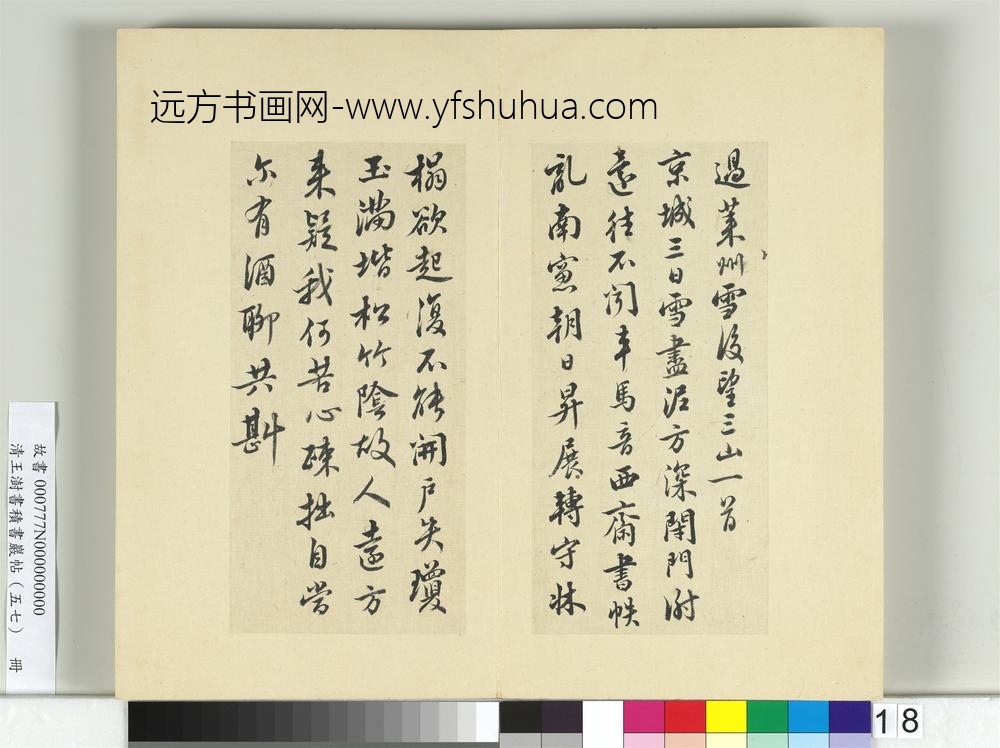 远方书画网-www.yfshuhua.com
過莱州雪後望三山一首
京城三日雪盡泥方深閉門謝
還往不聞車馬音西齋書帙
亂南窻朝日昇展轉守牀
榻欲起復不能開戶失瓊
玉滿堦松竹陰故人遠方
来疑我何苦心疎拙自當
尔有酒聊共斟
故書 000777N000000000
清王澍書積書巖帖（五七） 冊
18